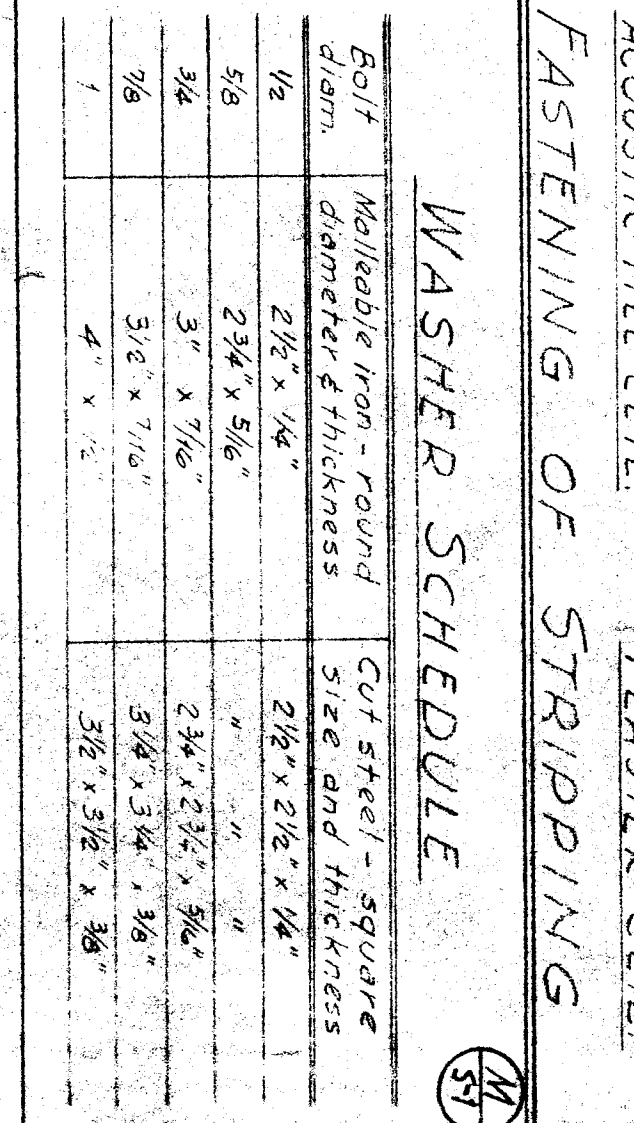 ACOUSTIC TILE CEIL. PLASTER CEIL.
FASTENING OF STRIPPING
WASHER SCHEDULE
M
S-1
Bolt diam. Malleable iron - round diameter & thickness Cut steel - square size and thickness
1/2 2 1/2" x 1/4" 2 1/2" x 2 1/2" x 1/4"
5/8 2 3/4" x 5/16" " " "
3/4 3" x 7/16" 2 3/4" x 2 3/4" x 5/16"
7/8 3 1/2" x 7/16" 3 1/4" x 3 1/4" x 3/8"
1 4" x 1/2" 3 1/2" x 3 1/2" x 3/8"